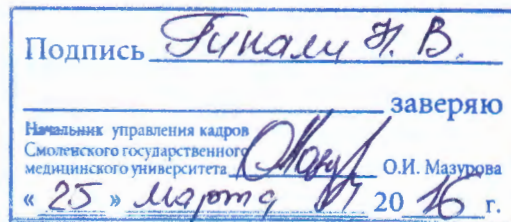 Подпись Гинали Н. В.
заверяю
Начальник управления кадров
Смоленского государственного
медицинского университета О.И. Мазурова
« 25 » марта 20 16 г.